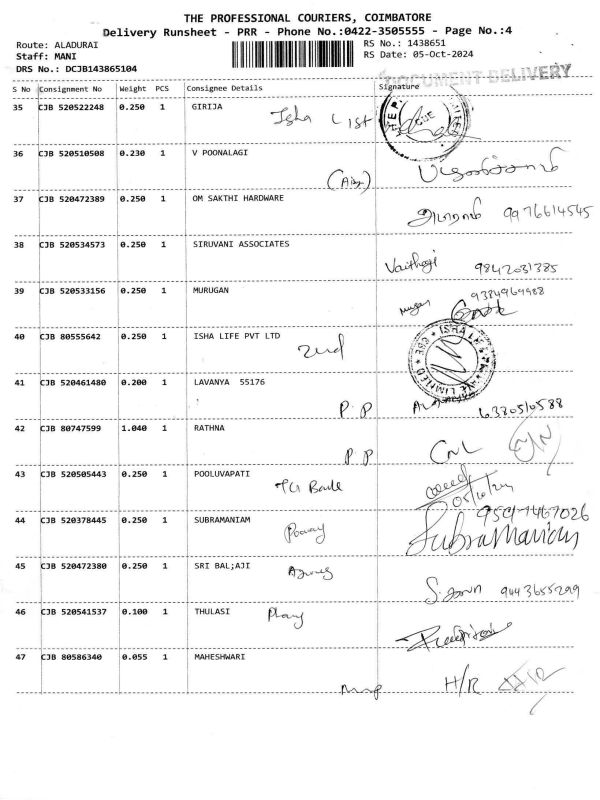 THE PROFESSIONAL COURIERS, COIMBATORE
Delivery Runsheet - PRR - Phone No.:0422-3505555 - Page No.:4
Route: ALADURAI RS No.: 1438651
Staff: MANI RS Date: 05-Oct-2024
DRS No.: DCJB143865104
DOCUMENT DELIVERY
S No Consignment No Weight PCS Consignee Details Signature
35 CJB 520522248 0.250 1 GIRIJA Isha List
36 CJB 520510508 0.230 1 V POONALAGI
37 CJB 520472389 0.250 1 OM SAKTHI HARDWARE 9976614545
38 CJB 520534573 0.250 1 SIRUVANI ASSOCIATES 9842031385
39 CJB 520533156 0.250 1 MURUGAN 9384969988
40 CJB 80555642 0.250 1 ISHA LIFE PVT LTD 2nd
41 CJB 520461480 0.200 1 LAVANYA 55176 P.P 6380510588
42 CJB 80747599 1.040 1 RATHNA P P
43 CJB 520505443 0.250 1 POOLUVAPATI 05/10/24
44 CJB 520378445 0.250 1 SUBRAMANIAM Subramaniam
45 CJB 520472380 0.250 1 SRI BAL;AJI 9443655299
46 CJB 520541537 0.100 1 THULASI
47 CJB 80586340 0.055 1 MAHESHWARI H/R